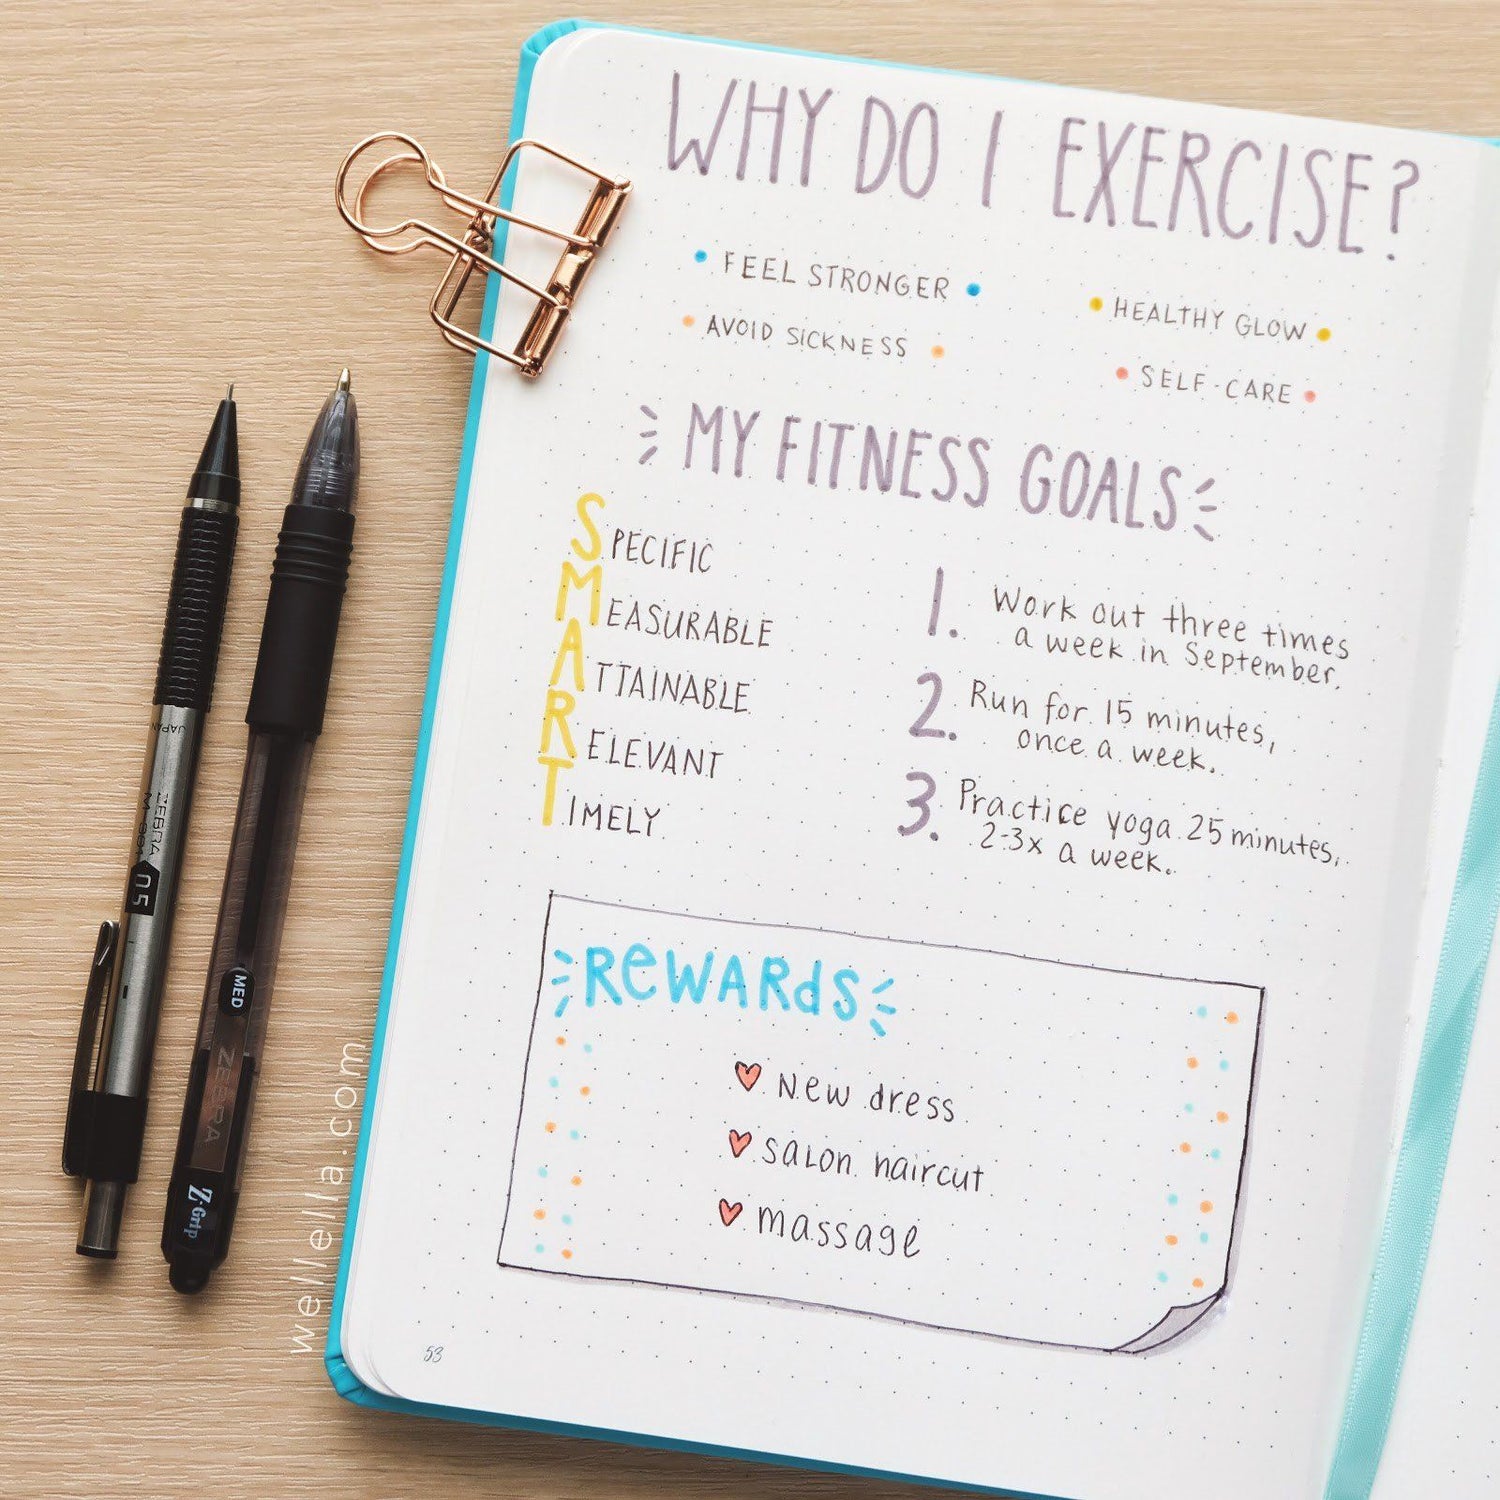 WHY DO I EXERCISE?
FEEL STRONGER
HEALTHY GLOW
AVOID SICKNESS
SELF-CARE
MY FITNESS GOALS
SPECIFIC
MEASURABLE
ATTAINABLE
RELEVANT
TIMELY
1. Work out three times
a week in September.
2. Run for 15 minutes,
once a week.
3. Practice yoga 25 minutes,
2-3x a week.
REWARDS
New dress
salon haircut
massage
53
wellella.com
JAPAN
ZEBRA
0.5
MED
ZEBRA
Z-Grip